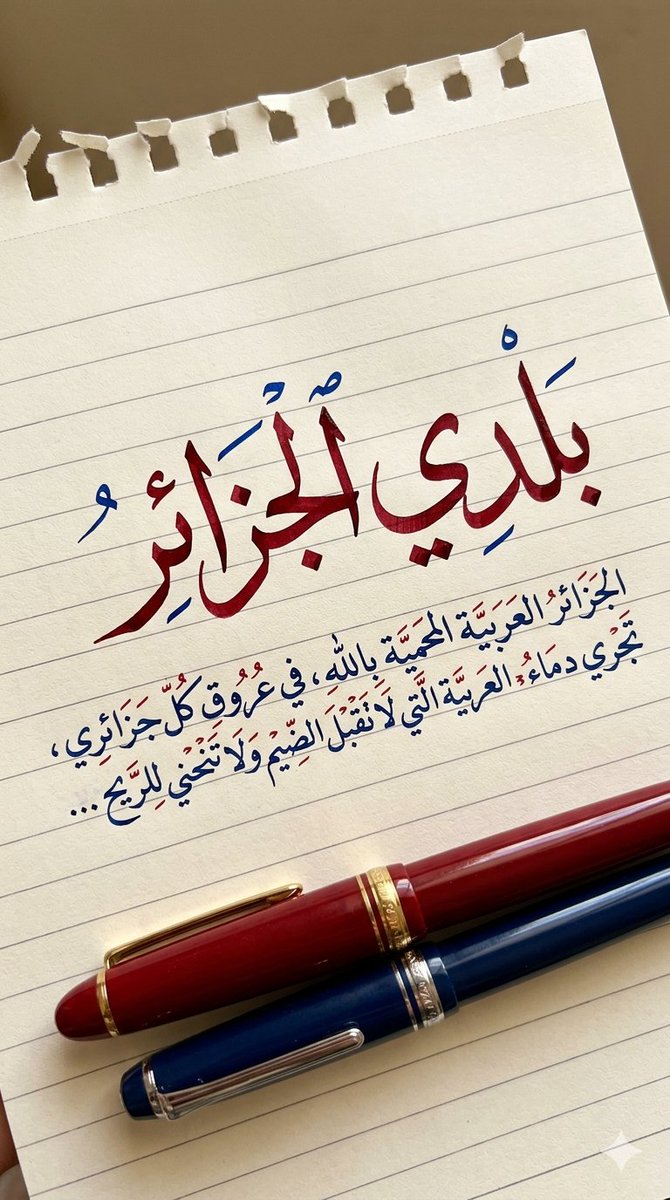 بَلْدِي ٱلْجَزَائِرُ
الجَزَائرُ العَرَبيَّة المحَميَّة بِاللهِ، في عُرُوقِ كُلّ جَزَائِري،
تَجْري دمَاءُ العَربيَّة الَّتي لَا تَقْبَلَ الضِّيْم وَلَا تَنْحْني لِلرَّيح ...